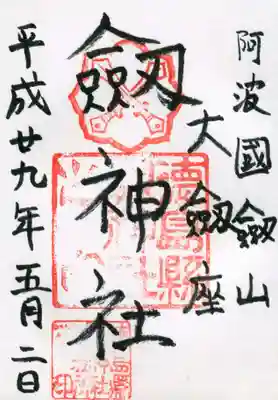 阿波國劔山
大劔座
劔神社
平成廿九年五月二日